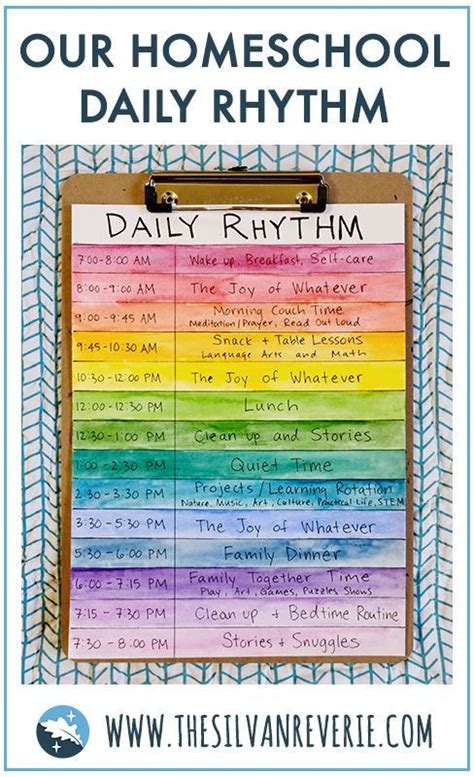 OUR HOMESCHOOL
DAILY RHYTHM
DAILY RHYTHM
7:00-8:00 AM Wake up, Breakfast, Self-care
8:00 - 9:00 AM The Joy of Whatever
9:00 - 9:45 AM Morning Couch Time
Meditation/Prayer, Read Out Loud
9:45 - 10:30 AM Snack + Table Lessons
Language Arts and Math
10:30 - 12:00 PM The Joy of Whatever
12:00 - 12:30 PM Lunch
12:30 - 1:00 PM Clean up and Stories
1:00 - 2:30 PM Quiet Time
2:30 - 3:30 PM Projects / Learning Rotation
Nature, Music, Art, Culture, Practical Life, STEM
3:30 - 5:30 PM The Joy of Whatever
5:30 - 6:00 PM Family Dinner
6:00 - 7:15 PM Family Together Time
Play, Art, Games, Puzzles, Shows
7:15 - 7:30 PM Clean up + Bedtime Routine
7:30 - 8:00 PM Stories + Snuggles
WWW.THESILVANREVERIE.COM